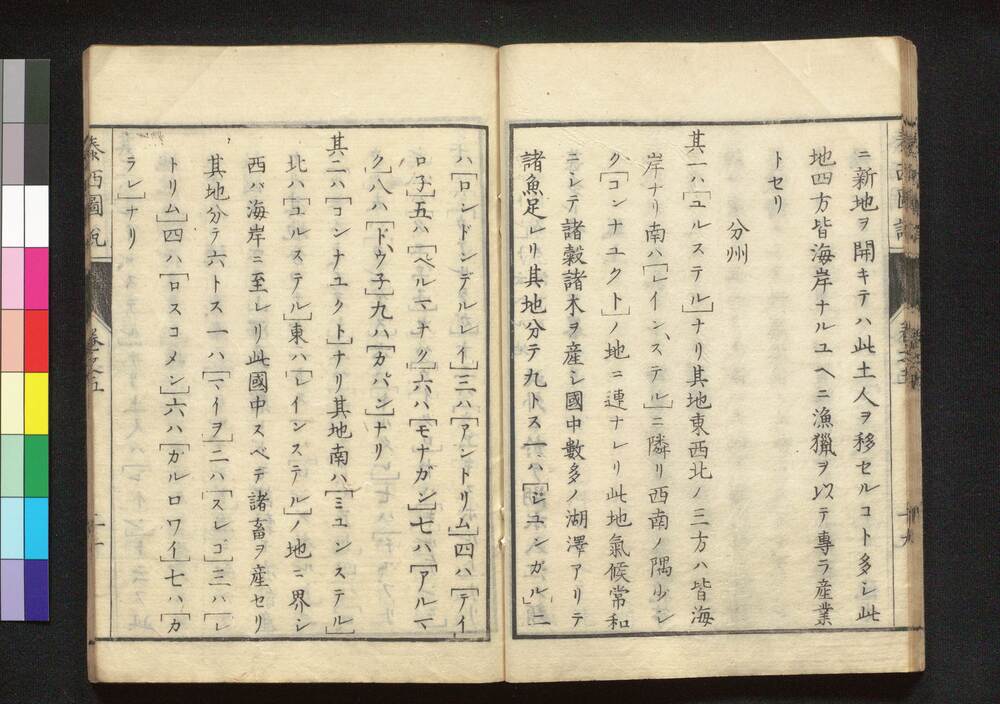 ニ新地ヲ開キテハ此土人ヲ移セルコト多シ此
地四方皆海岸ナルユヘニ漁獵ヲ以テ專ラ產業
トセリ
分州
其一ハ[ユルステル]ナリ其地東西北ノ三方ハ皆海
岸ナリ南ハ[レインステル]ニ隣リ西南ノ隅少シ
ク[コンナユクト]ノ地ニ連ナレリ此地氣候常和
ニシテ諸穀諸木ヲ產シ國中數多ノ湖澤アリテ
諸魚足レリ其地分テ九トス一ハ[ジユンガル]二
ハ[ロンドンデルレイ]三ハ[アントリム]四ハ[テイ
ロ子]五ハ[ペルマナグ]六ハ[モナガン]七ハ[アルマ
ク]八ハ[ドウ子]九ハ[カバン]ナリ
其二ハ[コンナユクト]ナリ其地南ハ[ミユンステル]
北ハ[ユルステル]東ハ[レインステル]ノ地ニ界シ
西ハ海岸ニ至レリ此國中スベテ諸畜ヲ產セリ
其地分テ六トス一ハ[マイヲ]二ハ[スレゴ]三ハ[レ
トリム]四ハ[ロスコメン]六ハ[ガルロワイ]七ハ[カ
ラレ]ナリ
泰西圖說
卷之五